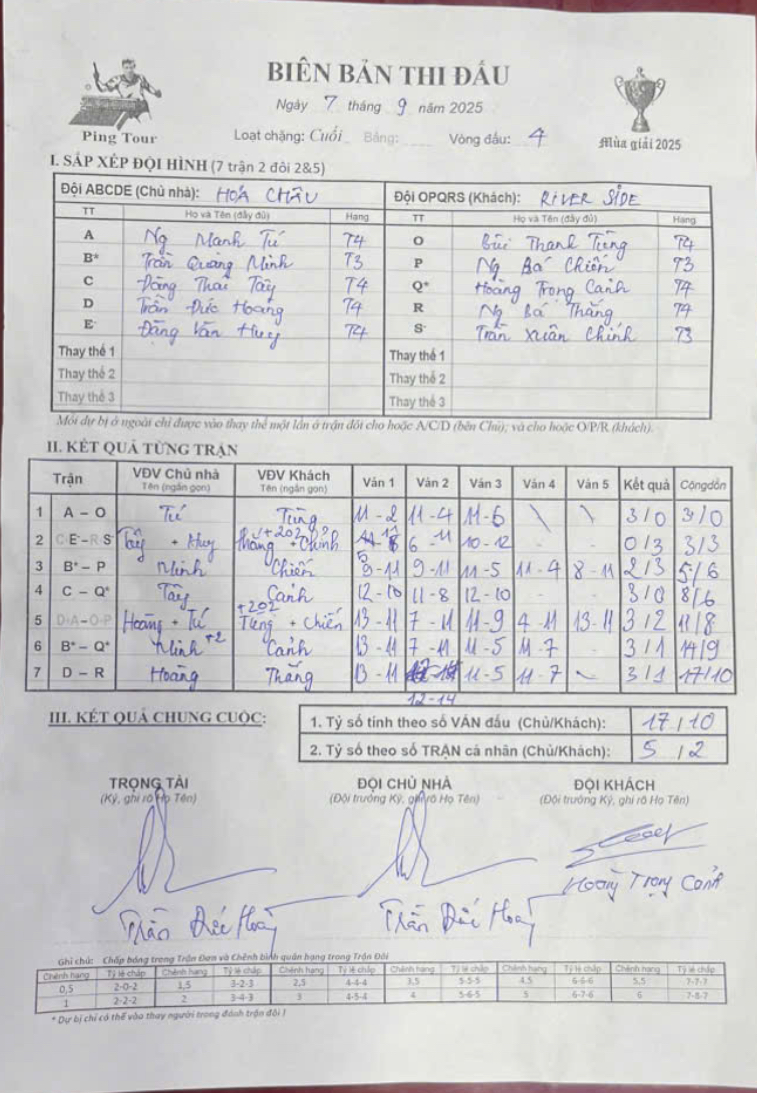 BIÊN BẢN THI ĐẤU
Ngày 7 tháng 9 năm 2025
Ping Tour
Loạt chặng: Cuối Bảng: Vòng đấu: 4
Mùa giải 2025
I. SẮP XẾP ĐỘI HÌNH (7 trận 2 đôi 2&5)
Đội ABCDE (Chủ nhà): HOÁ CHÂU Đội OPQRS (Khách): RIVER SIDE
TT Họ và Tên (đầy đủ) Hạng TT Họ và Tên (đầy đủ) Hạng
A Ng Mạnh Tú T4 O Bùi Thanh Tùng T4
B* Trần Quang Minh T3 P Ng Bá Chiến T3
C Đặng Thái Tây T4 Q* Hoàng Trọng Cảnh T4
D Trần Đức Hoàng T4 R Ng Bá Thắng T4
E- Đặng Văn Huy T4 S- Trần Xuân Chính T3
Thay thế 1 Thay thế 1
Thay thế 2 Thay thế 2
Thay thế 3 Thay thế 3
Mỗi dự bị ở ngoài chỉ được vào thay thế một lần ở trận đôi cho hoặc A/C/D (bên Chủ); và cho hoặc O/P/R (khách).
II. KẾT QUẢ TỪNG TRẬN
Trận VĐV Chủ nhà Tên (ngắn gọn) VĐV Khách Tên (ngắn gọn) Ván 1 Ván 2 Ván 3 Ván 4 Ván 5 Kết quả Cộng dồn
1 A – O Tú Tùng 11-2 11-4 11-6 \ \ 3/0 3/0
2 C-E-–R S- Tây + Huy Thắng + Chính +202 6-11 10-12 - - 0/3 3/3
3 B* – P Minh Chiến 9-11 9-11 11-5 11-4 8-11 2/3 5/6
4 C – Q* Tây Cảnh 12-10 11-8 12-10 - - 3/0 8/6
5 D-A–O-P Hoàng + Tú Tùng + Chiến +202 13-11 7-11 11-9 4-11 13-11 3/2 11/8
6 B* – Q* Minh +2 Cảnh 13-11 7-11 11-5 11-7 - 3/1 14/9
7 D – R Hoàng Thắng 13-11 12-14 11-5 11-7 - 3/1 17/10
III. KẾT QUẢ CHUNG CUỘC:
1. Tỷ số tính theo số VÁN đấu (Chủ/Khách): 17/10
2. Tỷ số theo số TRẬN cá nhân (Chủ/Khách): 5/2
TRỌNG TÀI ĐỘI CHỦ NHÀ ĐỘI KHÁCH
(Ký, ghi rõ Họ Tên) (Đội trưởng Ký, ghi rõ Họ Tên) (Đội trưởng Ký, ghi rõ Họ Tên)
Hoàng Trọng Cảnh
Trần Đức Hoàng Trần Đức Hoàng
Ghi chú: Chấp bóng trong Trận Đơn và Chênh bình quân hạng trong Trận Đôi
Chênh hạng Tỷ lệ chấp Chênh hạng Tỷ lệ chấp Chênh hạng Tỷ lệ chấp Chênh hạng Tỷ lệ chấp Chênh hạng Tỷ lệ chấp Chênh hạng Tỷ lệ chấp
0,5 2-0-2 1,5 3-2-3 2,5 4-4-4 3,5 5-5-5 4,5 6-6-6 5,5 7-7-7
1 2-2-2 2 3-4-3 3 4-5-4 4 5-6-5 5 6-7-6 6 7-8-7
* Dự bị chỉ có thể vào thay người trong đánh trận đôi !